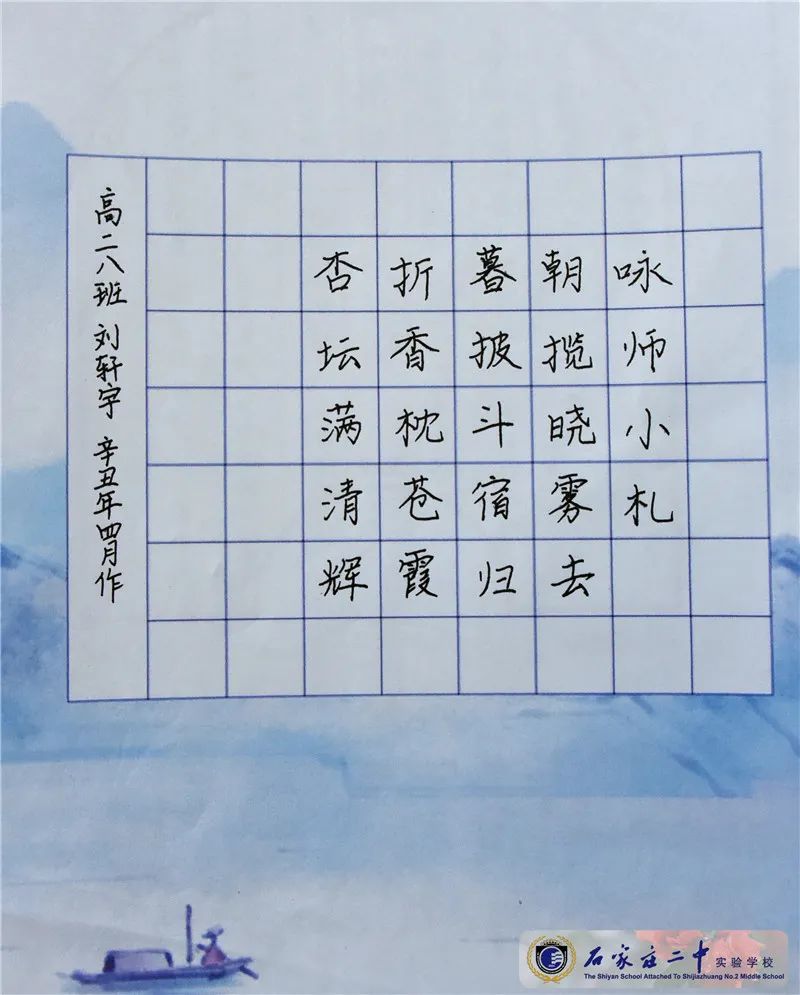 咏师小札
朝揽晓雾去
暮披斗宿归
折香枕苍霞
杏坛满清辉
高二八班 刘轩宇 辛丑年四月作
石家庄二中实验学校
The Shiyan School Attached To Shijiazhuang No.2 Middle School